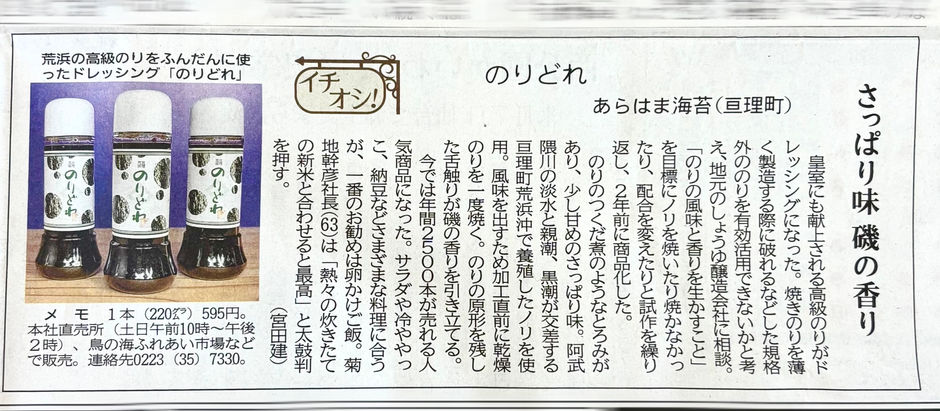 さっぱり味 磯の香り
のりどれ
あらはま海苔(亘理町)
イチオシ!
皇室にも献上される高級のりがド
レッシングになった。焼きのりを薄
く製造する際に破れるなどした規格
外ののりを有効活用できないかと考
え、地元のしょうゆ醸造会社に相談。
「のりの風味と香りを生かすこと」
を目標にノリを焼いたり焼かなかっ
たり、配合を変えたりと試作を繰り
返し、2年前に商品化した。
のりのつくだ煮のようなとろみが
あり、少し甘めのさっぱり味。阿武
隈川の淡水と親潮、黒潮が交差する
亘理町荒浜沖で養殖したノリを使
用。風味を出すため加工直前に乾燥
のりを一度焼く。のりの原形を残し
た舌触りが磯の香りを引き立てる。
今では年間2500本が売れる人
気商品になった。サラダや冷ややっ
こ、納豆などさまざまな料理に合う
が、一番のお勧めは卵かけご飯。菊
地幹彦社長(63)は「熱々の炊きたて
の新米と合わせると最高」と太鼓判
を押す。
(宮田建)
荒浜の高級のりをふんだんに使
ったドレッシング「のりどれ」
のりどれ
のりどれ
のりどれ
メモ 1本(220㌘)595円。
本社直売所(土日午前10時〜午後
2時)、鳥の海ふれあい市場など
で販売。連絡先0223(35)7330。